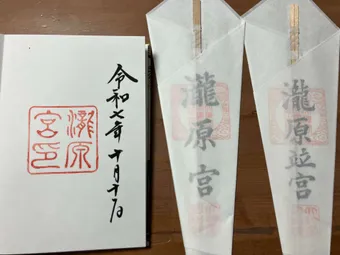 令和七年十月十六日
瀧原
宮印
瀧原宮
瀧原竝宮